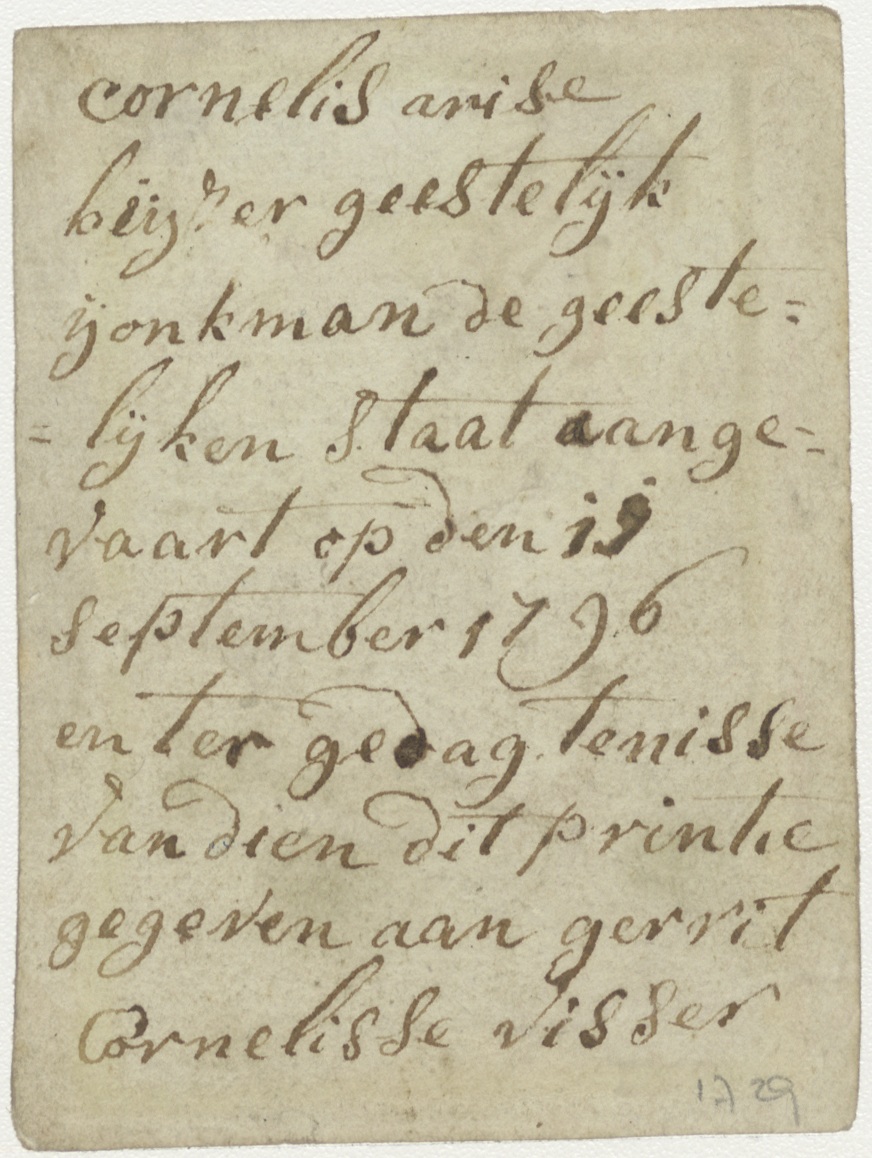 cornelis arise
keyser geestelÿk
ÿonkman de geeste=
=lÿken staat aange=
vaart op den 15
september 1796
en ter gedagtenisse
van dien dit printie
gegeven aan gerrit
Cornelisse visser
1729